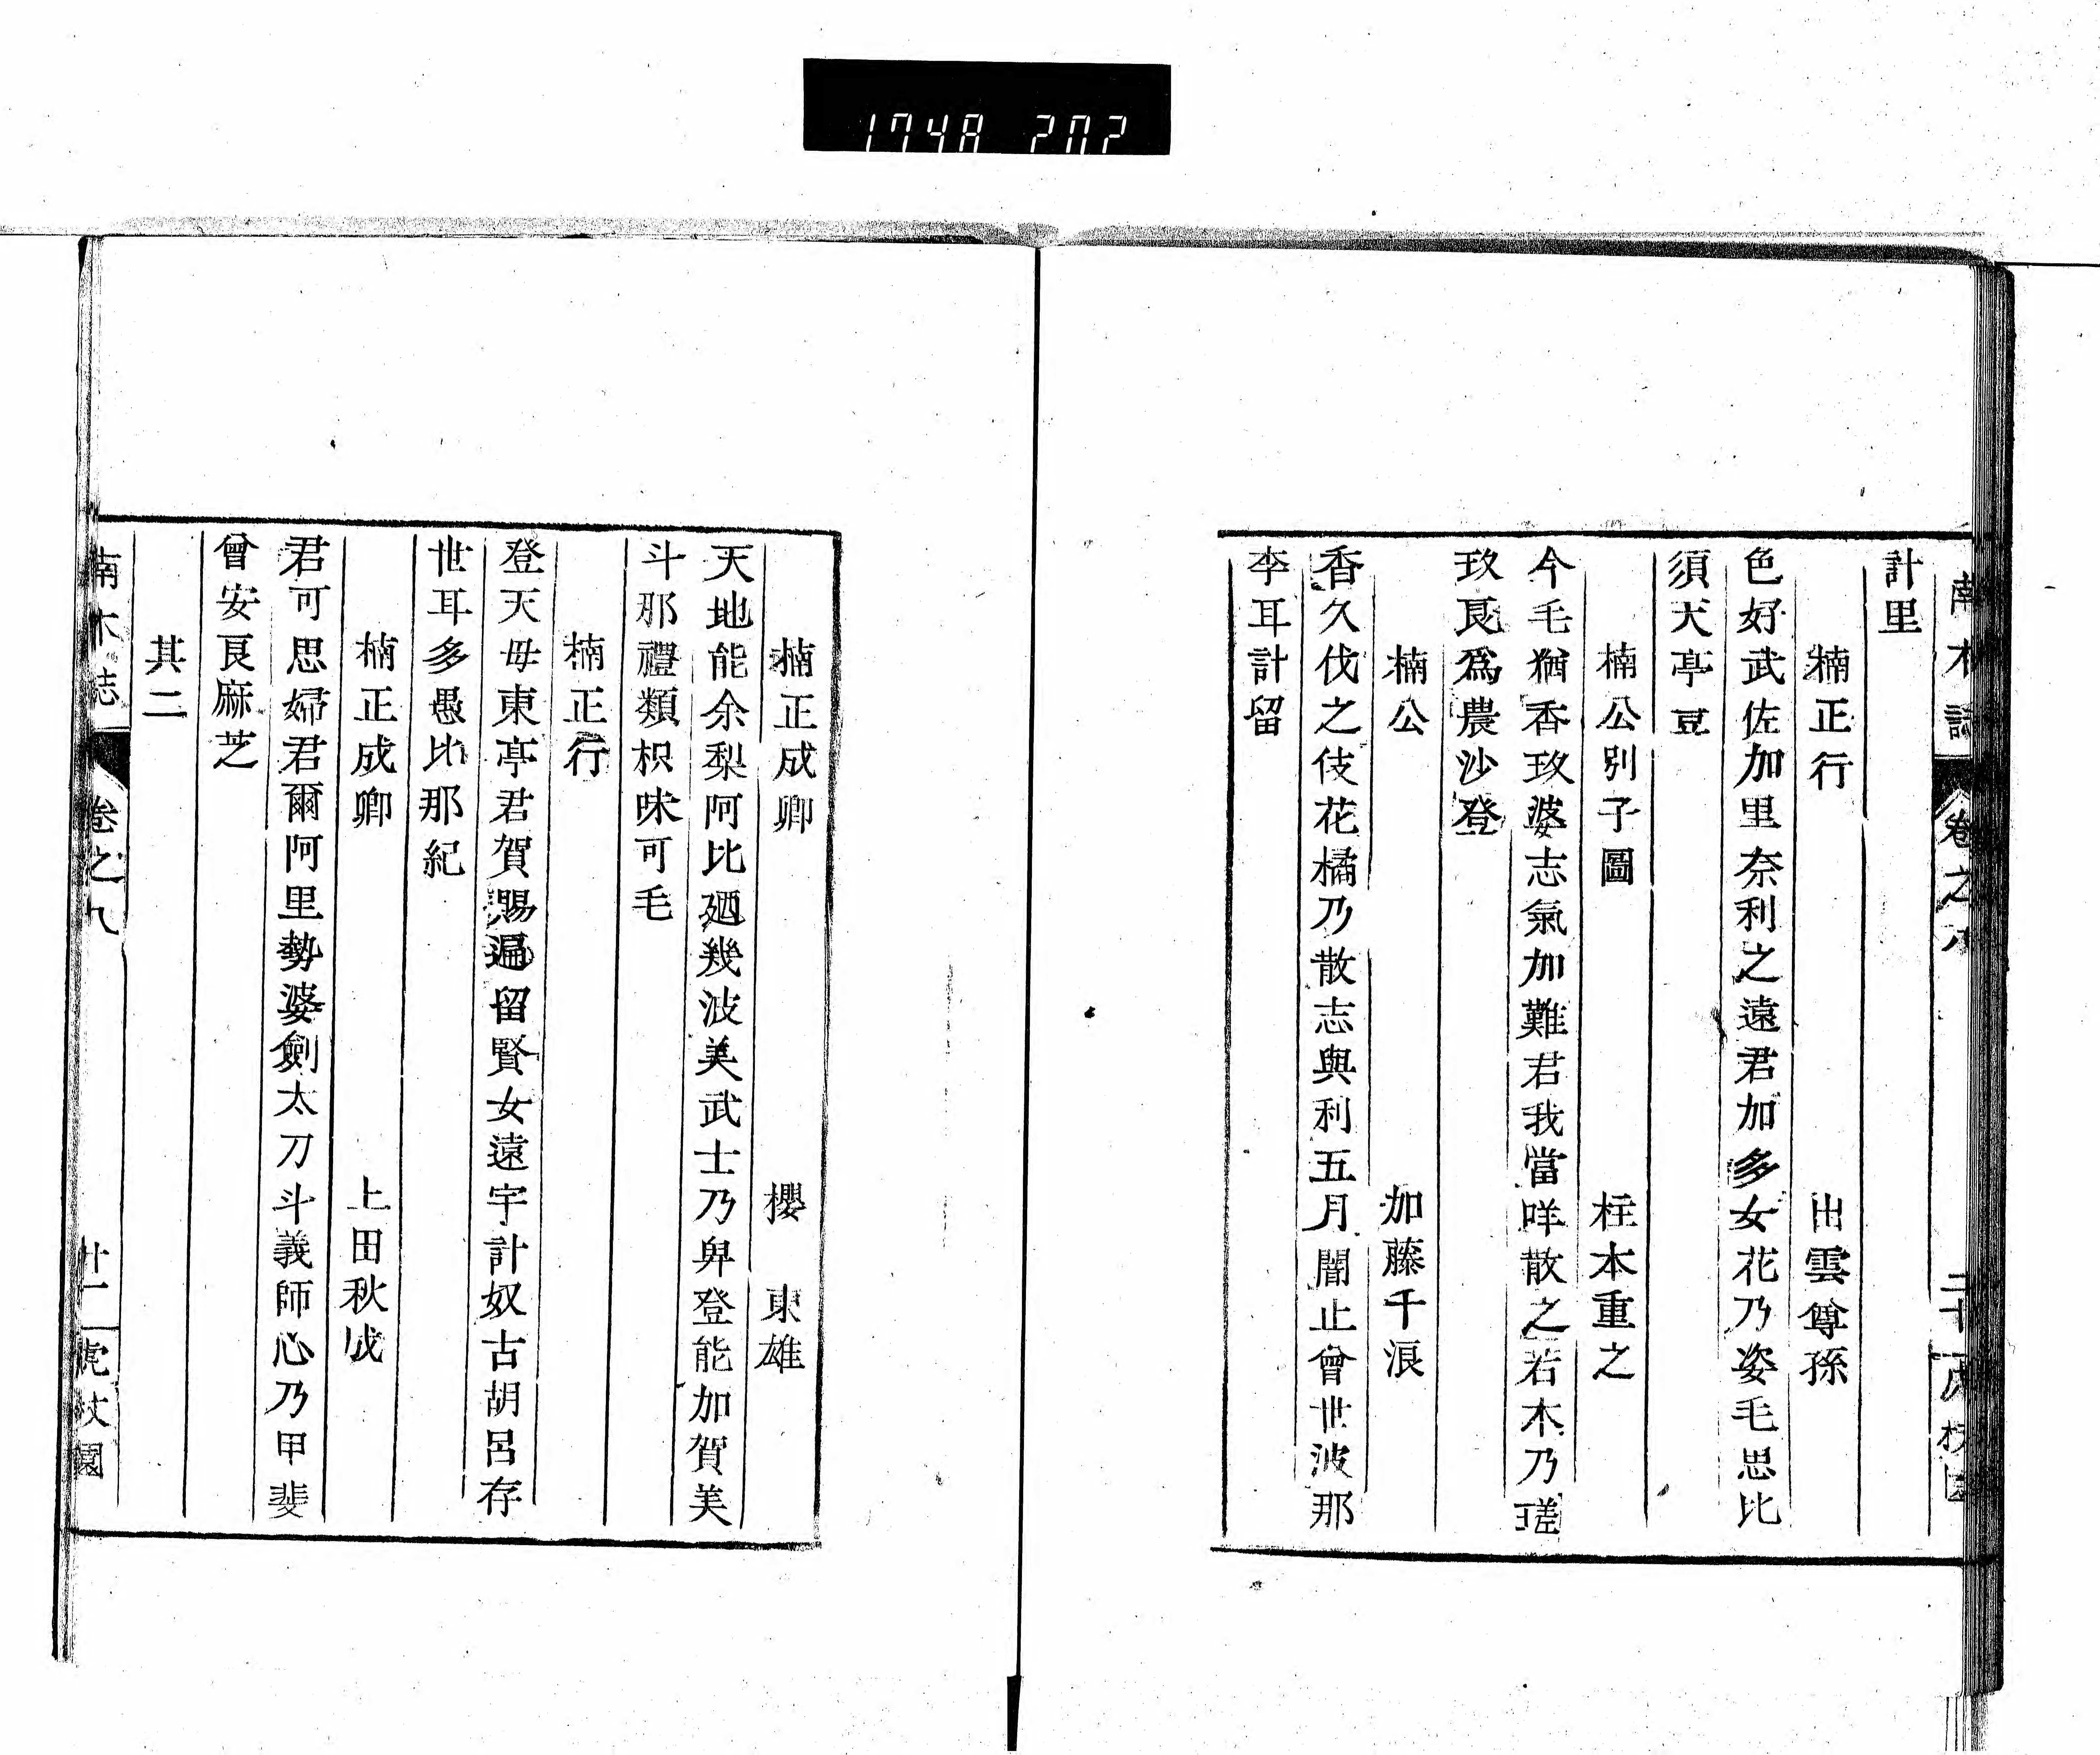 1748 202
計里
楠正行 出雲尊孫
色好武佐加里奈利之遠君加多女花乃姿毛思比
須天亭豆
楠公別子圖 柱本重之
今毛猶香玖婆志氣加難君我當咩散之若木乃瑳
玖良爲農沙登
楠公 加藤千浪
香久伐之伎花橘乃散志與利五月闇止曾世波那
李耳計留
楠正成卿 櫻東雄
天地能余梨阿比廼幾波美武士乃臾登能加賀美
斗那禮類枳味可毛
楠正行
登天母東亭君賀賜遍留賢女遠宇計奴古胡呂存
世耳多愚比那紀
楠正成卿 上田秋成
君可思婦君爾阿里勢婆劍太刀斗義師心乃甲斐
曾安良麻芝
其二
南木誌 卷之八 廿一 虎杖園